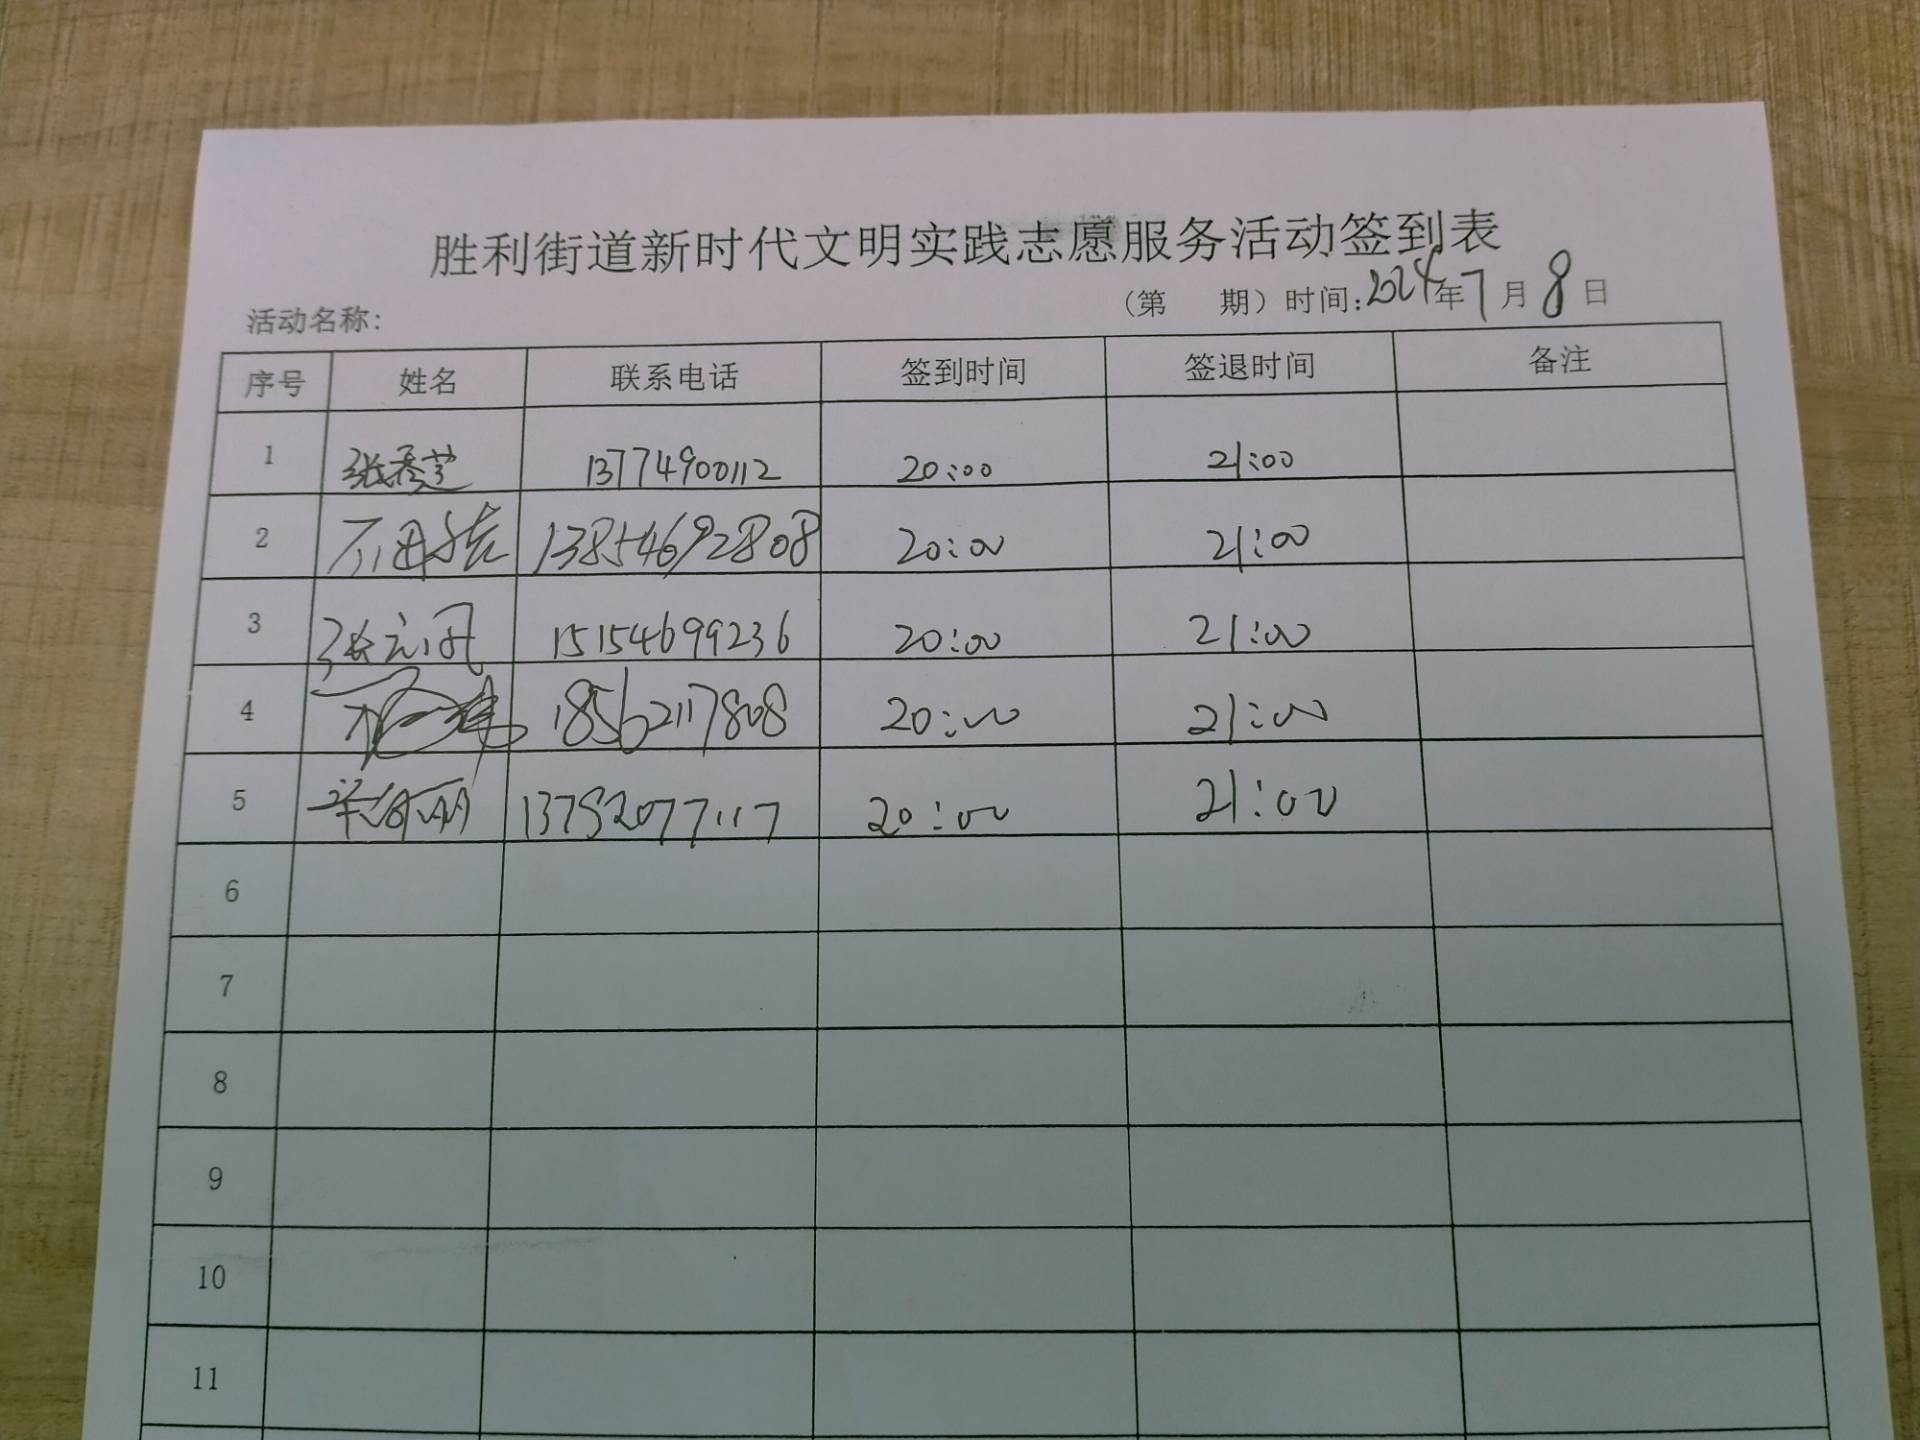 胜利街道新时代文明实践志愿服务活动签到表
活动名称: （第 期）时间:2024年7月8日
序号 姓名 联系电话 签到时间 签退时间 备注
1 张秀芝 13774900112 20:00 21:00
2 13854692808 20:00 21:00
3 15154699236 20:00 21:00
4 18562117808 20:00 21:00
5 13792077117 20:00 21:00
6
7
8
9
10
11